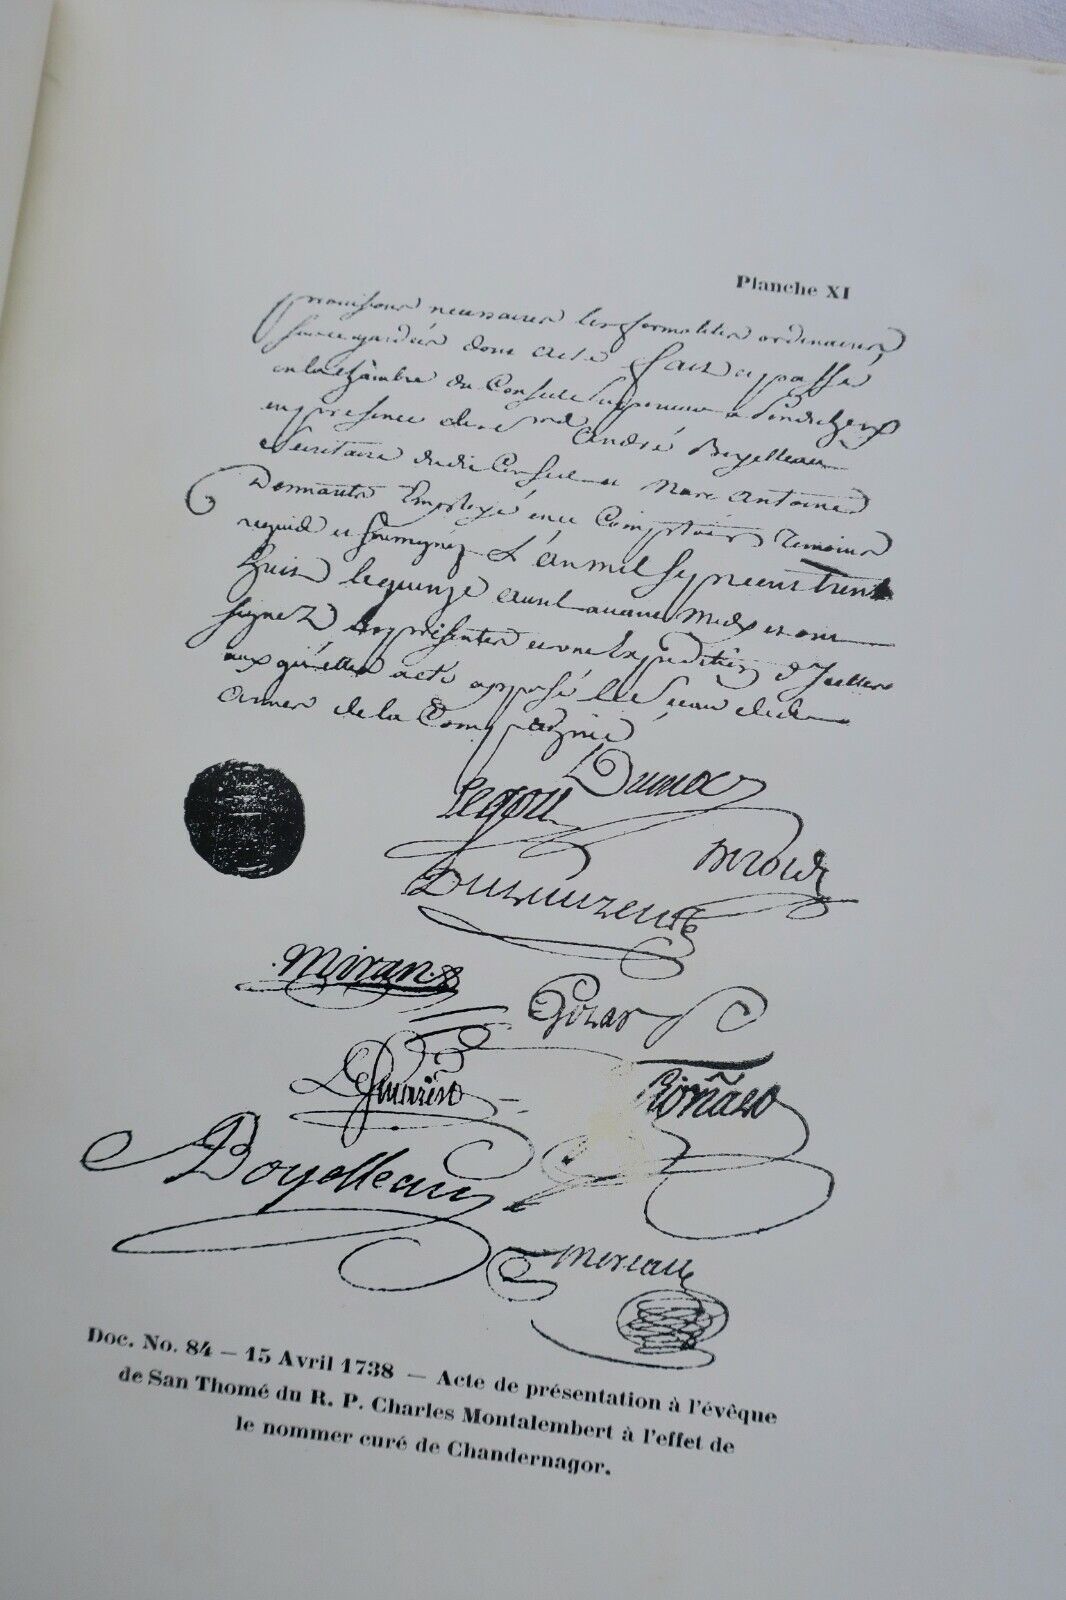 Planche XI
provisions necessaires les formalités ordinaires
gardées dont acte fait et passé
en la Chambre du Conseil superieur a Pondichery
en presence de André Boyelleau
Secretaire dudit Conseil et Marc Antoine
Employé en ce Comptoir Temoins
requis et soussignez L'an mil sept cens trente
huit le quinze avril avant midy et ont
signez les presentes et une Expedition d'Icelles
aux quelles a eté apposé le Sceau des
armes de la Compagnie
Dumas
Legou
Dulaurens
Miran
Golar
Boyelleau
moreau
Doc. No. 84 — 15 Avril 1738 — Acte de présentation à l'évêque
de San Thomé du R. P. Charles Montalembert à l'effet de
le nommer curé de Chandernagor.